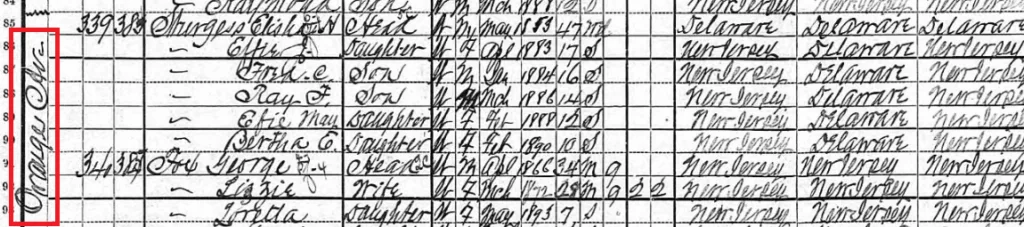 84 Raymond Son W M Mch 1888 12 S New Jersey Delaware New Jersey
85 339 383 Sturgess Elisha N Head W M May 1853 47 Wd Delaware Delaware Delaware
86 — Effie Daughter W F Apl 1883 17 S New Jersey Delaware New Jersey
87 — Fred. C. Son W M Jan 1884 16 S New Jersey Delaware New Jersey
88 — Ray F. Son W M Mch 1886 14 S New Jersey Delaware New Jersey
— Efie May Daughter W F Fet 1888 12 S New Jersey Delaware New Jersey
— Bertha E. Daughter W F Feb 1890 10 S New Jersey Delaware New Jersey
341 385 Fox George Head W M Apl 1866 34 M 9 New Jersey New Jersey New Jersey
— Lizzie Wife W F Mch 28 M 9 2 2 New Jersey New Jersey New Jersey
— Loretta Daughter W F May 1893 7 S New Jersey New Jersey New Jersey
Orange Ave